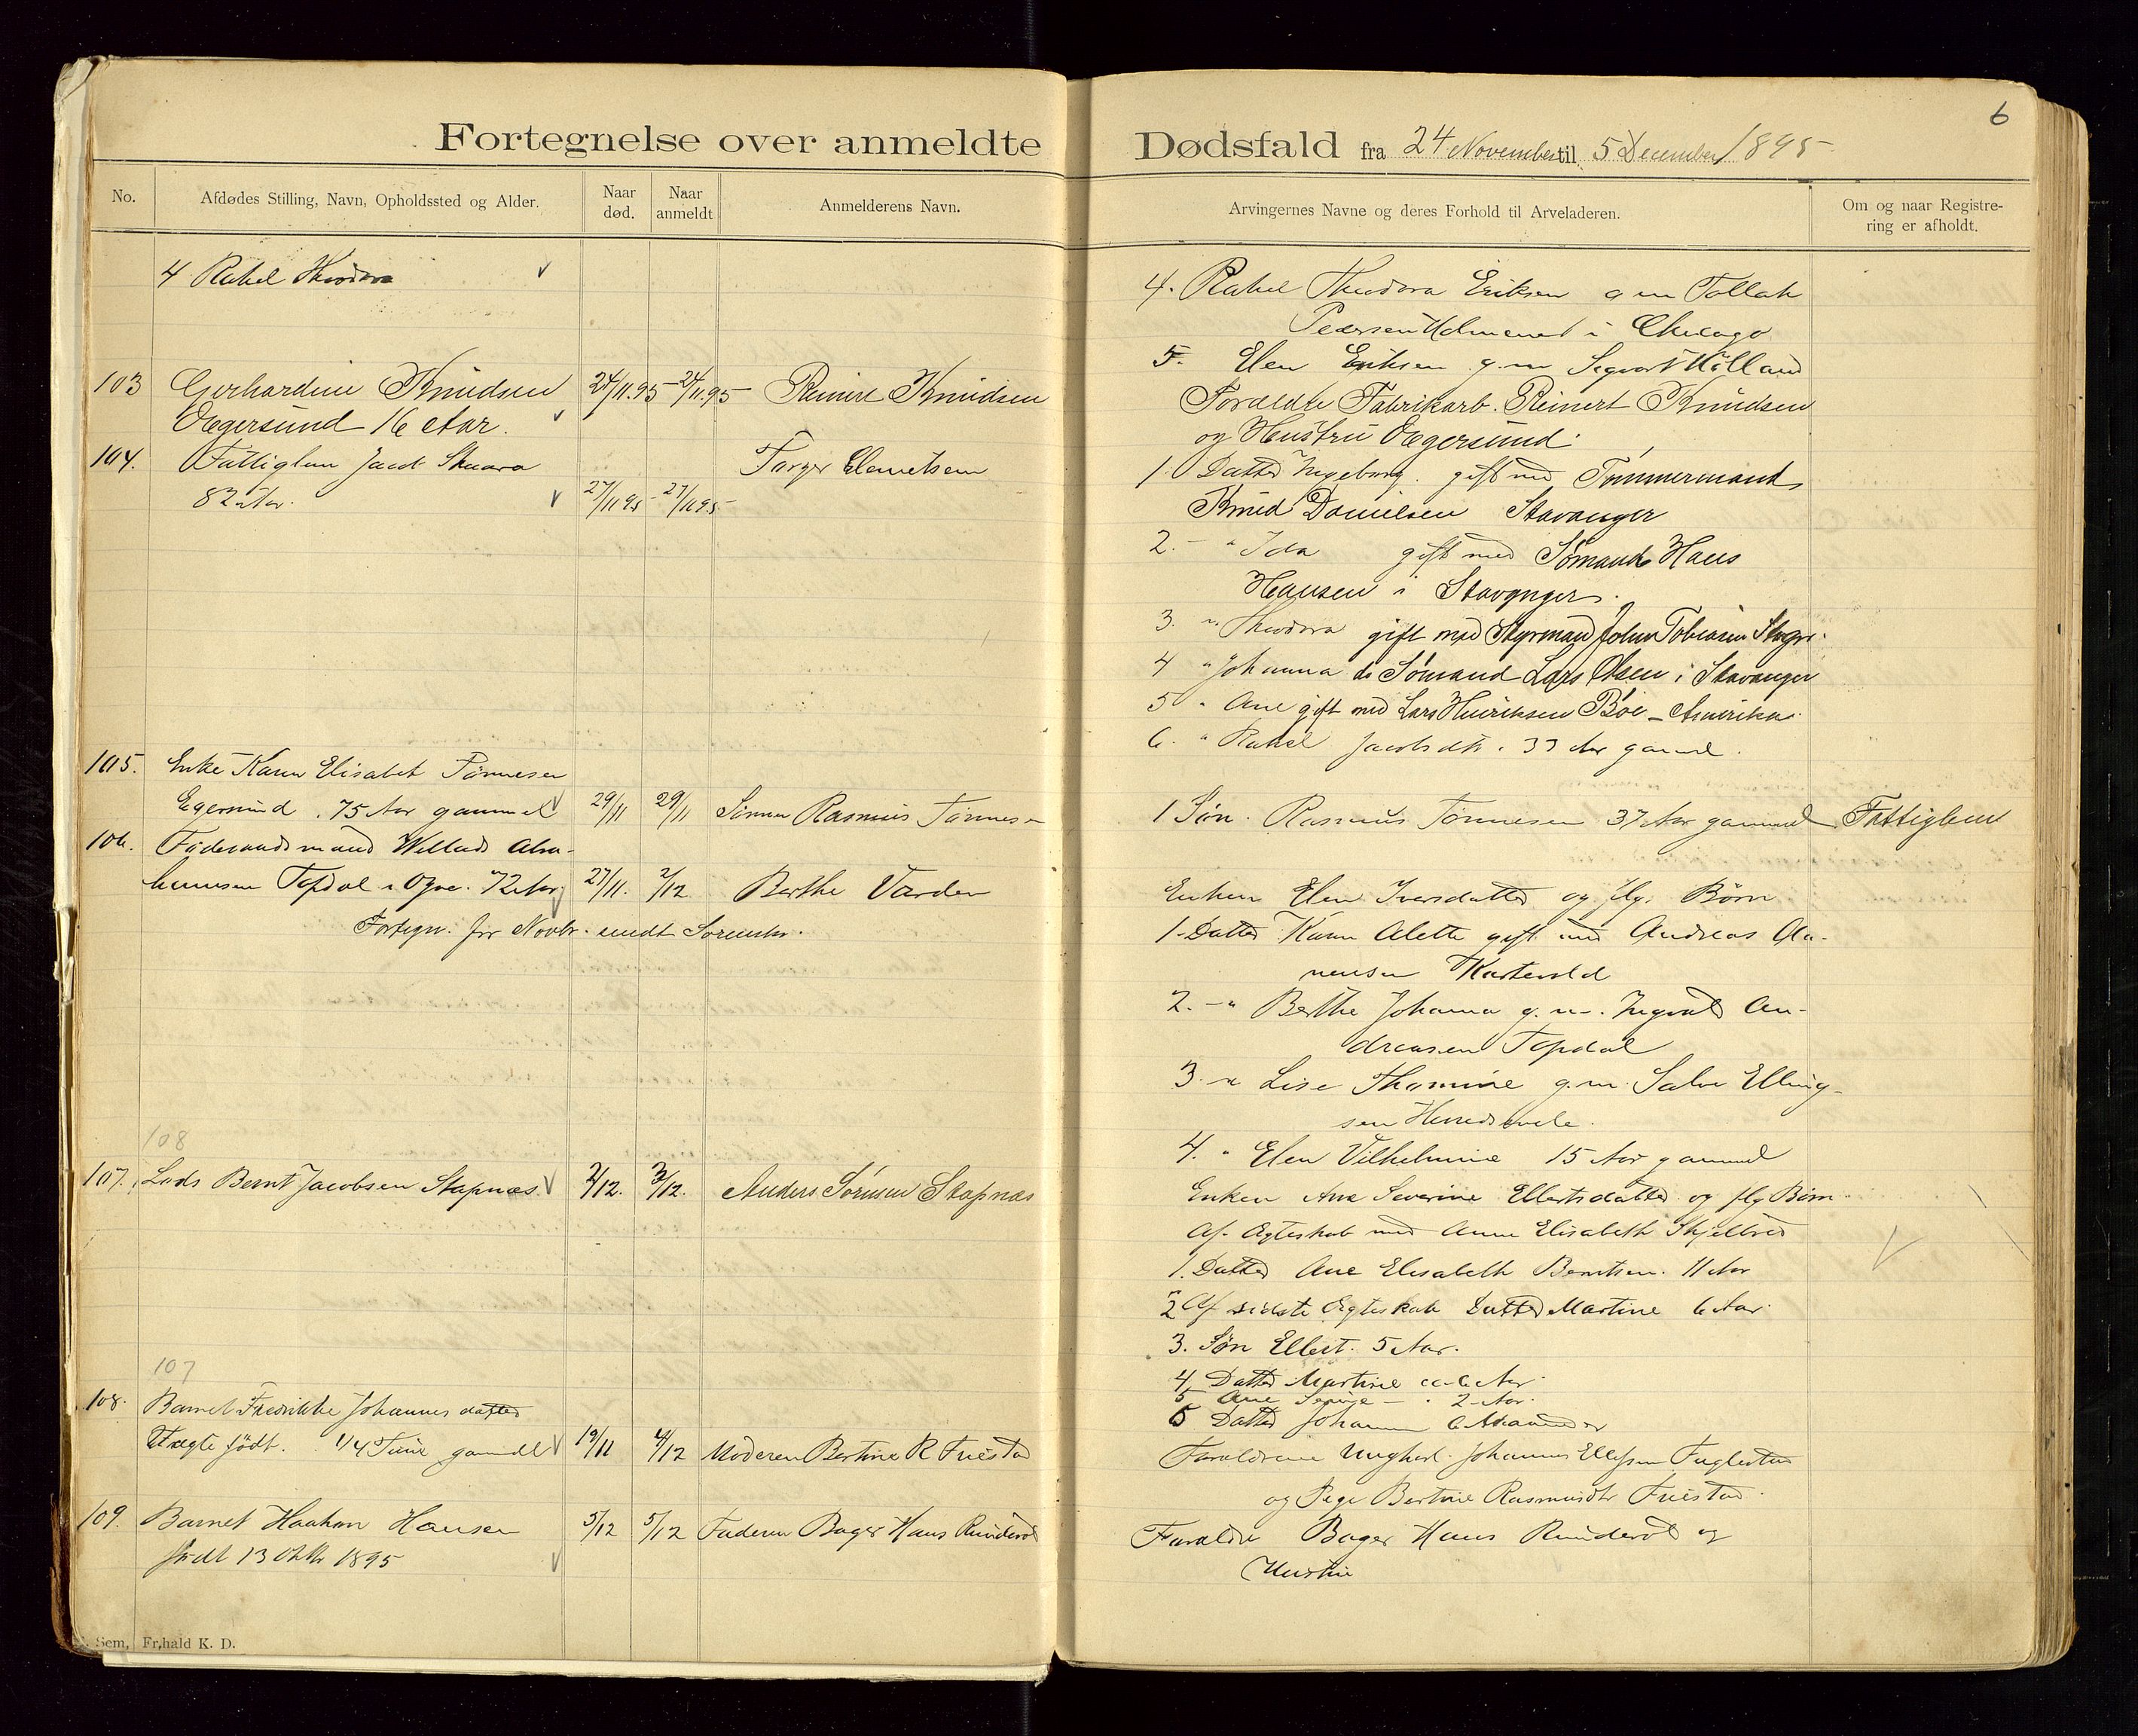 Fortegnelse over anmeldte
No.
Afdødes Stilling, Navn, Opholdssted og Alder.
Naar død.
Naar anmeldt
Anmelderens Navn.
4 Rakel Theodora
103 Gerhardine Knudsen 24/11.95 - 24/11.95 - Reinert Knudsen
Egersund 16 Aar.
104. Fattiglem Jacob Skaara Torger Clemetsen
82 Aar. 27/11 95 - 27/11 95 -
105. Enke Karen Elisabet Tønnesen
Egersund . 75 Aar gammel 29/11 29/11 Sønnen Rasmus Tønnesen
106. Føderaadsmand Abra-
hamsen Topdal i 72 Aar 27/11. 2/12 Berthe Varden
Fortegn. for Novbr. sendt Sorenskr.
108
107. Lods Bernt Jacobsen Stapnæs 2/12. 3/12. Anders Sørensen Stapnæs
107
108. Barnet Fredrikke Johannesdatter
Uægte født. 1/4 Time gammelt 19/11 4/12 Moderen Bertine R Freistad
109. Barnet Haakon Hansen 5/12 5/12 Faderen Bager Hans
født 13 Oktbr 1895
Sem, Fr.hald K. D.
6
Dødsfald fra 24 November til 5 December 1895
Arvingernes Navne og deres Forhold til Arveladeren.
Om og naar Registrering er afholdt.
4. Rakel Theodora Eriksen g m Tollak
Pedersen i Chicago
5. Elen Eriksen g. m Sigvart
Forældre Fabrikarb. Reinert Knudsen
og Hustru Egersund.
1. Datter Ingeborg. gift med Tømmermand
Knud Danielsen Stavanger
2. - " Ida gift med Sømand Hans
Hansen i Stavanger.
3. " Theodora gift med Styrmand John Tobiasen
4 " Johanna do Sømand Lars Olsen i Stavanger
5 " Ane gift med Lars Henriksen Bøe - Amerika.
6. " Rakel Jacobsdtr. 33 Aar gammel.
1 Søn. Rasmus Tønnesen 37 Aar gammel Fattiglem
Enken Elen Iversdatter og flg. Børn
1. Datter Karen Alette gift med Andreas Aa-
nensen
2. - " Berthe Johanna g. m. Ingvald An-
dreasen Topdal
3. " Lise Thomine g. m. Salve Elling-
sen
4. " Elen Vilhelmine 15 Aar gammel
Enken Ane Severine Ellertsdatter og flg Børn.
Af Ægteskab med Anne Elisabeth
1. Datter Ane Elisabeth Berntsen. 11 Aar
2 Af sidste Ægteskab Datter Martine 6 Aar.
3. Søn Ellert. 5 Aar.
4 Datter Martine 6 Aar.
5 Ane - " 2 Aar.
6 Datter Johanne 6 Maaneder
Forældrene Ungkarl. Johannes
og Pige Bertine Rasmusdtr Freistad.
Forældre Bager Hans og
Hustru